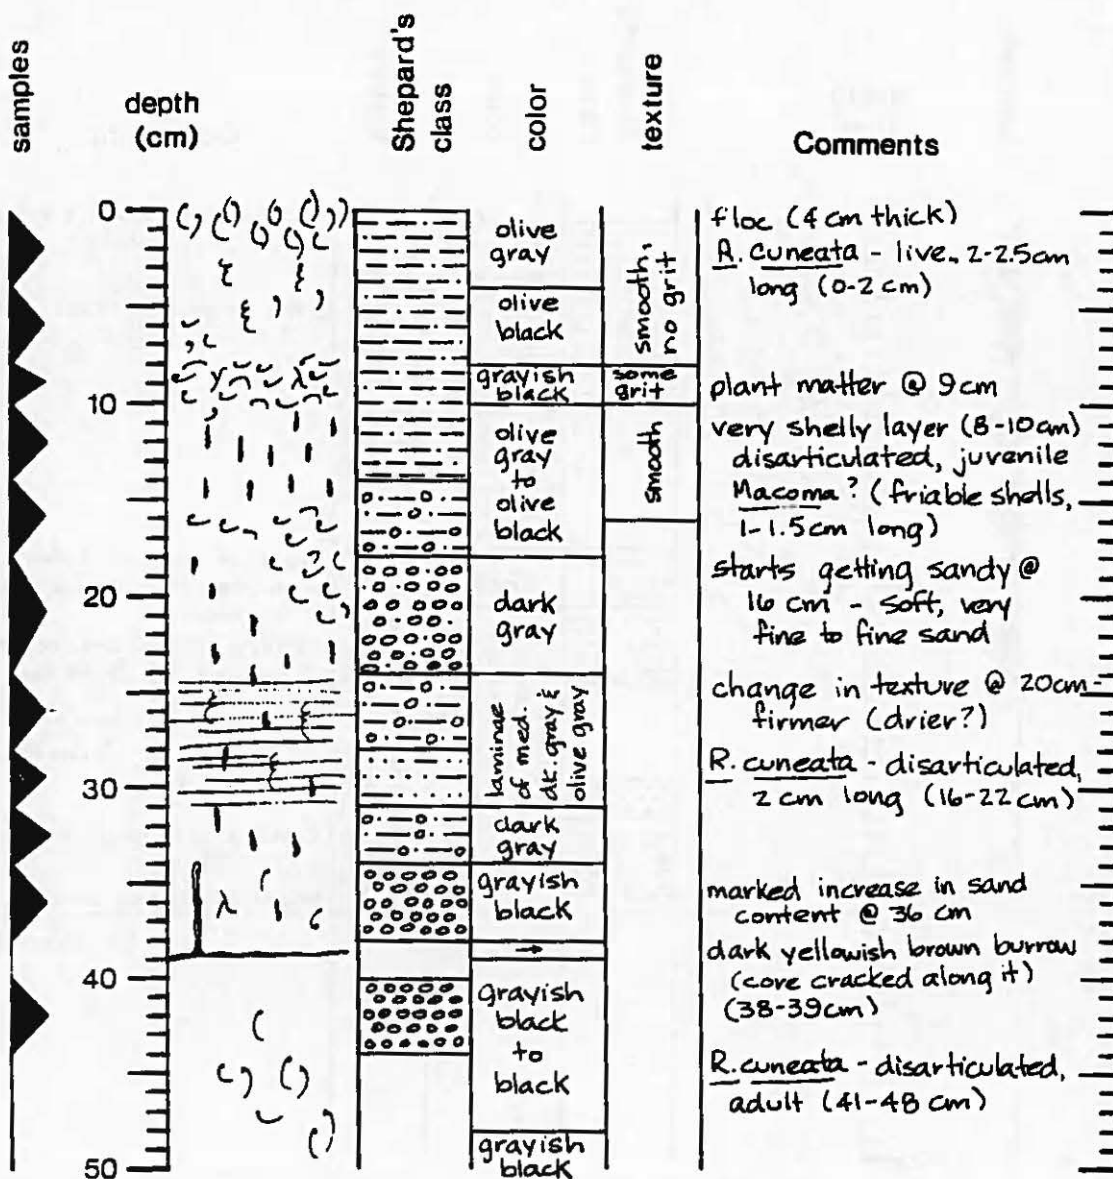 samples
depth
(cm)
Shepard's
class
color
texture
Comments
0
10
20
30
40
50
olive
gray
olive
black
grayish
black
olive
gray
to
olive
black
dark
gray
laminae
of med.
dk. gray &
olive gray
dark
gray
grayish
black
grayish
black
to
black
grayish
black
smooth,
no grit
some
grit
smooth
floc (4 cm thick)
R. cuneata - live, 2-2.5cm
long (0-2 cm)
plant matter @ 9cm
very shelly layer (8-10cm)
disarticulated, juvenile
Macoma? (friable shells,
1-1.5cm long)
starts getting sandy @
16 cm - soft, very
fine to fine sand
change in texture @ 20cm -
firmer (drier?)
R. cuneata - disarticulated,
2 cm long (16-22cm)
marked increase in sand
content @ 36 cm
dark yellowish brown burrow
(core cracked along it)
(38-39cm)
R. cuneata - disarticulated,
adult (41-48 cm)